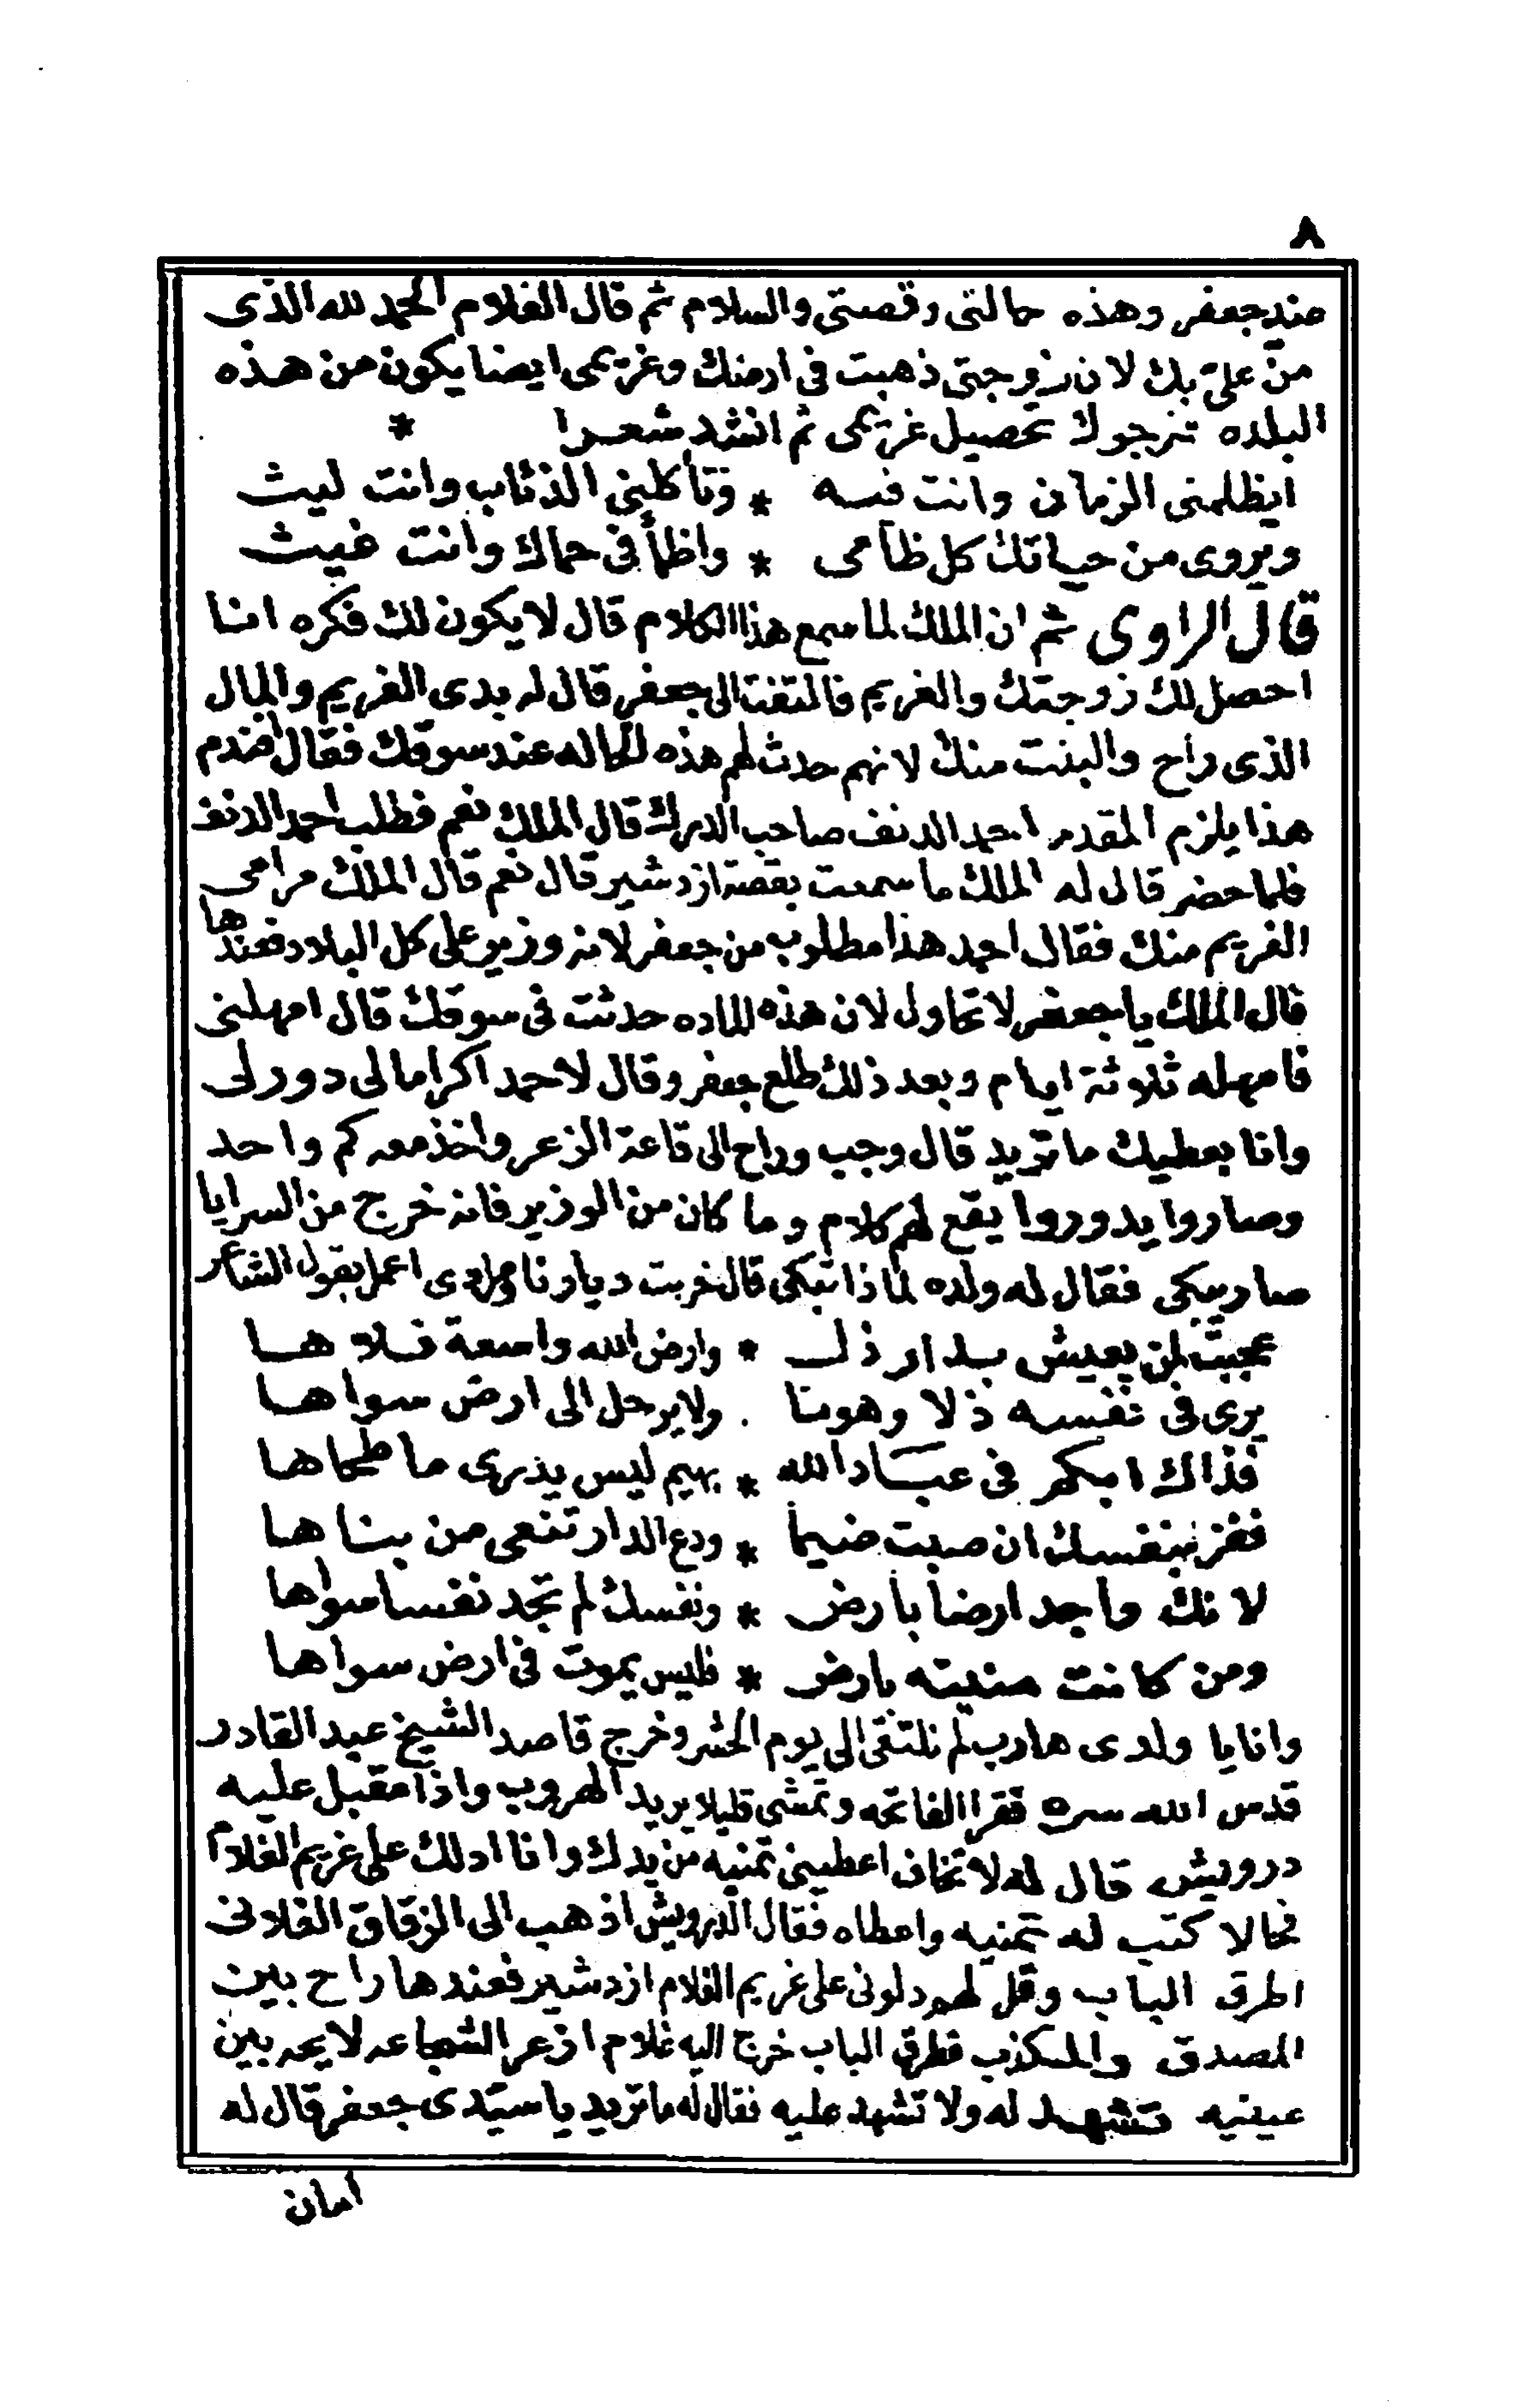 ٨
صنيد جعفر وهذه حالتى وقصتى والسلام ثم قال الغلام الحمد لله الذى
منّ علىّ بك لان زوجتى ذهبت فى ارضك وغريمى ايضا يكون من هذه
البلده نرجولا تحصيل غريمى ثم انشد شعرا *
ايظلمنى الزمان وانت فيه * وتأكلنى الذئاب وانت ليث
ويروى من حياتك كل ظامى * واظمأ فى حماك وانت غيث
قال الراوى ثم ان الملك لما سمع هذا الكلام قال لا يكون لك فكره انا
احصل لك زوجتك والغريم فالتفت الى جعفر قال له بدى الغريم والمال
الذى راح والبنت منك لانهم حدث لهم هذه الحاله عند سوقك فقال افندم
هذا يلزم المقدم احمد الدنف صاحب الدرك قال الملك نعم فطلب احمد الدنف
فلما حضر قال له الملك ما سمعت بقصة ازدشير قال نعم قال الملك مرامى
الغريم منك فقال احمد هذا مطلوب من جعفر لانه وزير على كل البلاد فعندها
قال الملك يا جعفر لا تحاول لان هذه الماده حدثت فى سوقك قال امهلنى
فامهله ثلاثة ايام وبعد ذلك طلع جعفر وقال لاحمد اكراما لى دور لى
وانا بعطيك ما تريد قال وجب وراح الى قاعة الزعر واخذ معه كم واحد
وصاروا يدوروا يقع لهم كلام وما كان من الوزير فانه خرج من السرايا
صار يبكى فقال له ولده لماذا تبكى قال خربت ديارنا ومرادى اعمل بقول الشاعر
عجبت لمن يعيش بدار ذل * وارض الله واسعة فلاها
يرى فى نفسه ذلا وهونا . ولا يرحل الى ارض سواها
فذاك ابكم فى عباد الله * بهيم ليس يدرى ما طحاها
ففز بنفسك ان صبت ضيما * ودع الدار تنعى من بناها
لانك واجد ارضا بارض * ونفسك لم تجد نفسا سواها
ومن كانت منيته بارض * فليس يموت فى ارض سواها
وانا يا ولدى هارب لم نلتقى الى يوم الحشر وخرج قاصد الشيخ عبد القادر
قدس الله سره فقرا الفاتحه وتمشى قليلا يريد الهروب واذا مقبل عليه
درويش قال له لا تخاف اعطينى تمنيه من يدك وانا ادلك على غريم الغلام
فحالا كتب له تمنيه واعطاه فقال الدرويش اذهب الى الزقاق الفلانى
اطرق الباب وقل لهم دلونى على غريم الغلام ازدشير فعندها راح بين
المصدق والمكذب فطرق الباب خرج اليه غلام ازعر الشجاعه لايحه بين
عينيه تشهد له ولا تشهد عليه فقال له ما تريد يا سيّدى جعفر قال له
امان